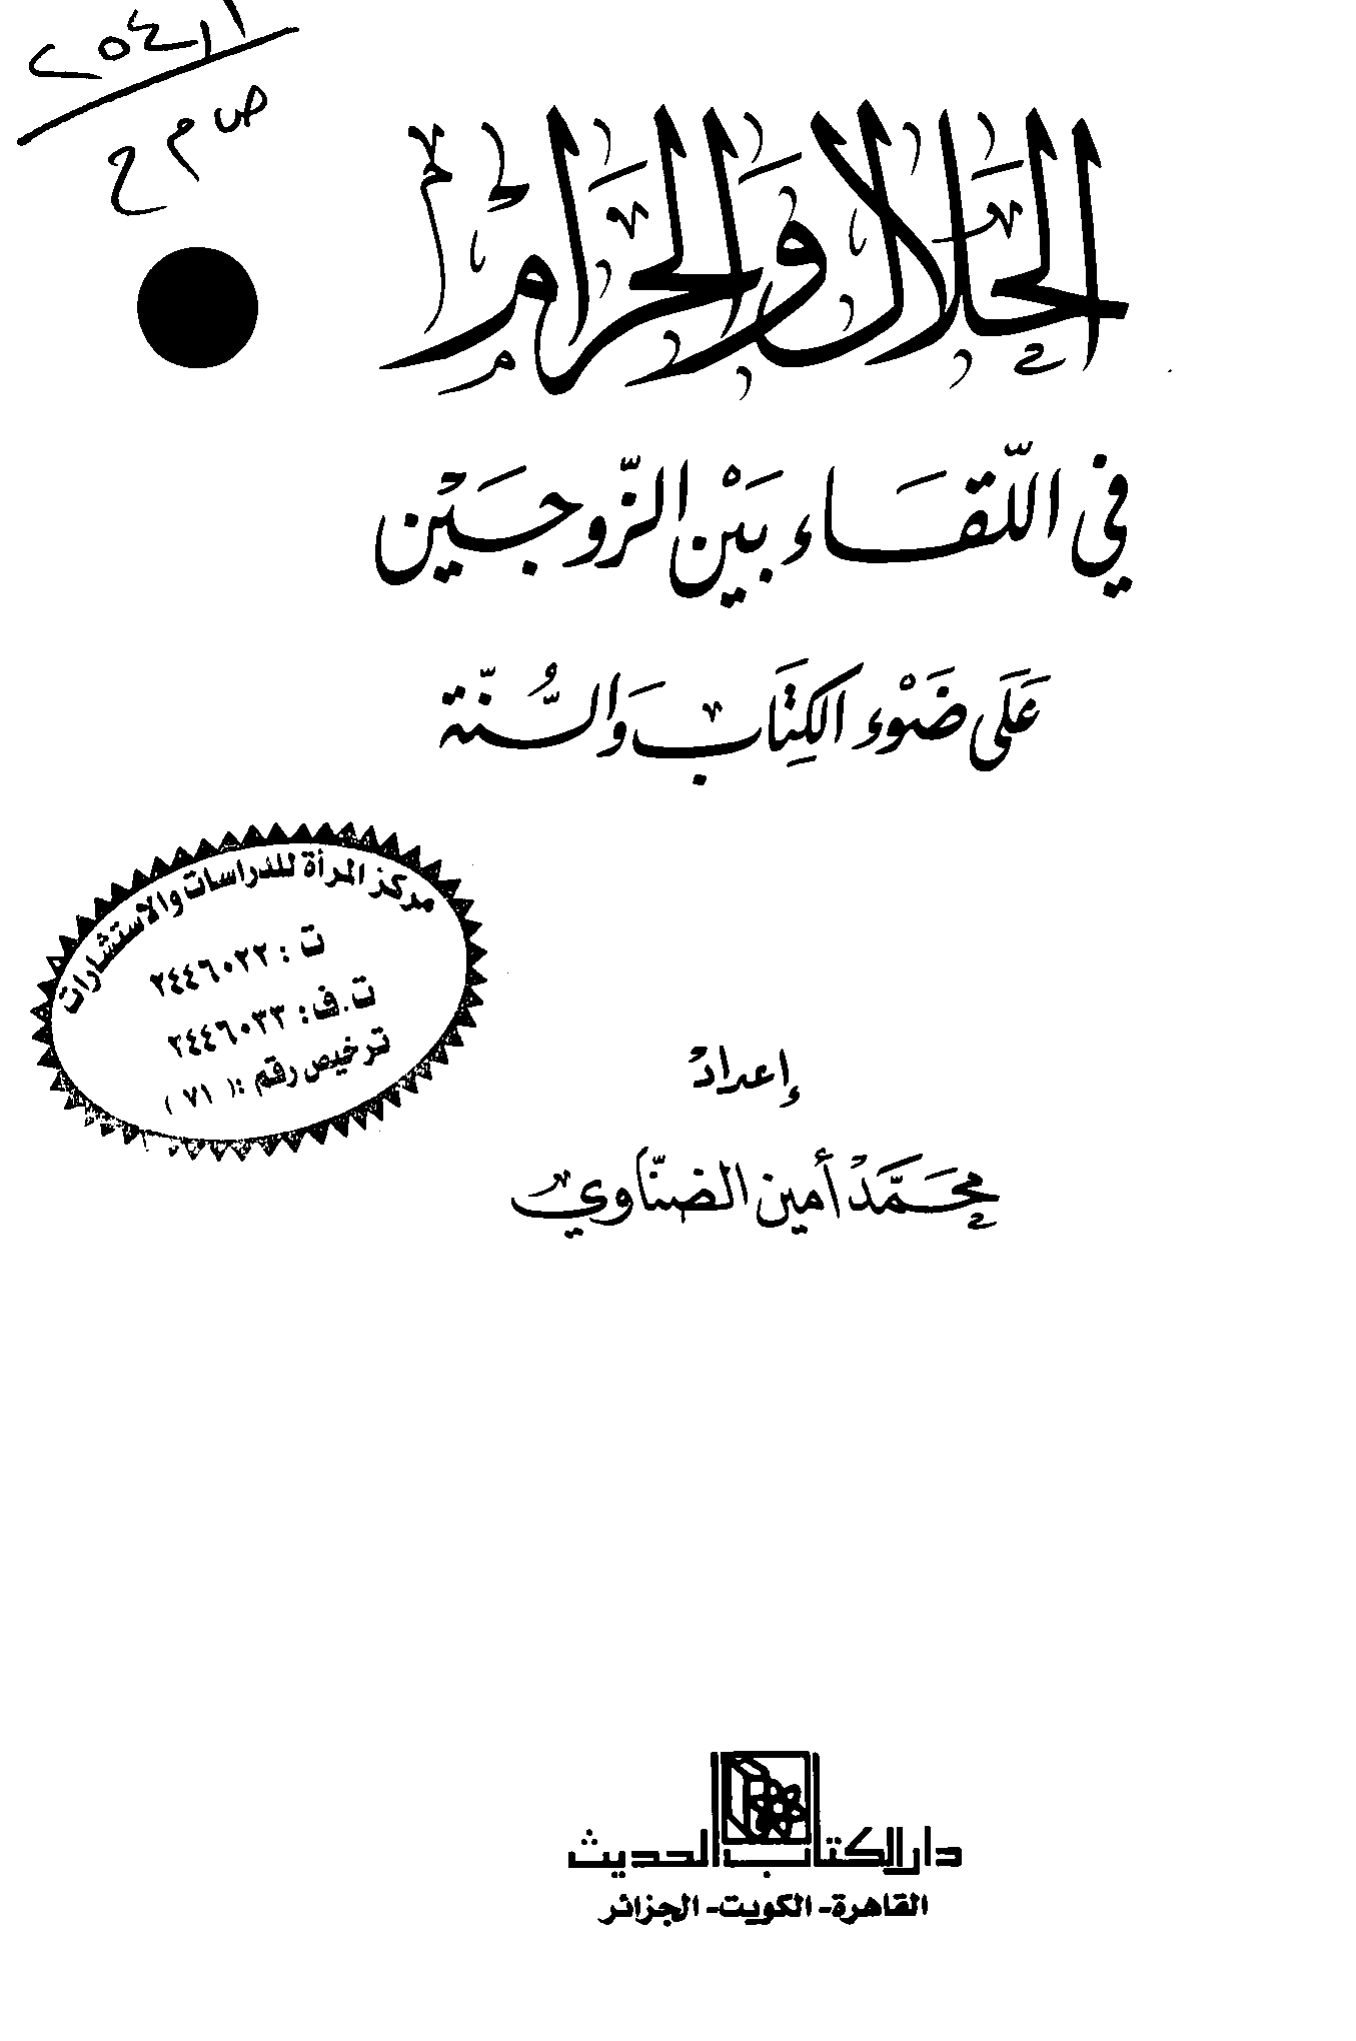 ٢٥٤,١
ص م ح
الحَلَال وَالحَرَامُ
في اللّقَاء بَيْن الزّوجَيْن
عَلَى ضَوْء الكِتَاب وَالسُّنّة
مركز المرأة للدراسات والاستشارات
ت : ٢٤٤٦٠٢٢
ت.ف: ٢٤٤٦٠٣٣
ترخيص رقم :( ٧١ )
إعداد
محمَّد أمين الضنّاوي
دار الكتاب الحديث
القاهرة - الكويت - الجزائر